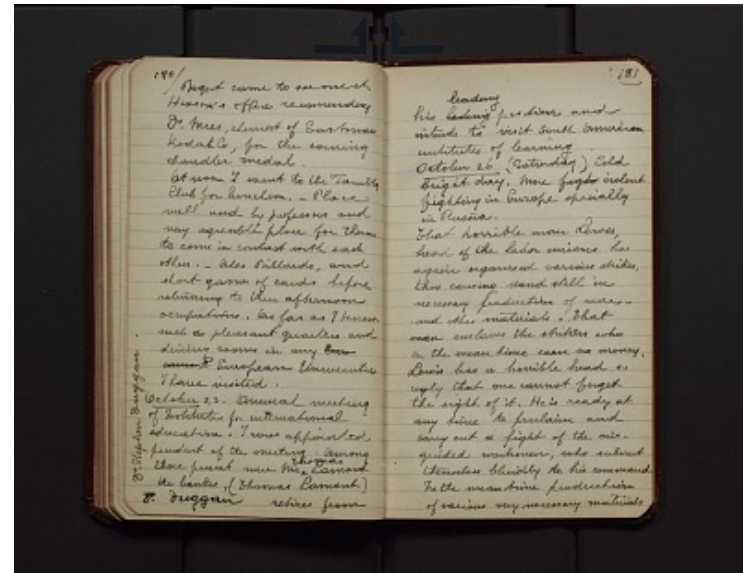 180/
Bogert came to see me at
Hixson's office recommending
Dr. Mees, chemist of Eastman
Kodak Co, for the coming
Chandler medal.
At noon I went to the
Club for luncheon. - Place
well used by professors and
very agreeable place for them
to come in contact with each
other. - Also Billiards, and
short games of cards before
returning to their afternoon
occupations. As far as I know
such a pleasant quarters and
dining rooms in any
European Universities
I have visited.
October 23. Annual meeting
of Institute for international
education. I was appointed
president of the meeting. Among
those present were Mr. Thomas Lamont
the banker, (Thomas Lamont)
Dr. Duggan retires from
Dr. Stephen Duggan.
181
his leading position and
intends to visit South American
institutes of learning.
October 26 (Saturday) Cold
bright day. More violent
fighting in Europe specially
in Russia.
That horrible man Lewis,
head of the labor unions has
again organised various strikes,
thus causing stand still in
necessary production of war-
and other materials. That
man enslaves the strikers who
in the mean time earn no money.
Lewis has a horrible head so
ugly that one cannot forget
the sight of it. He is ready at
any time to proclaim and
carry out a fight of the mis-
guided workmen, who submit
themselves blindly to his command
In the mean time production
of various very necessary materials